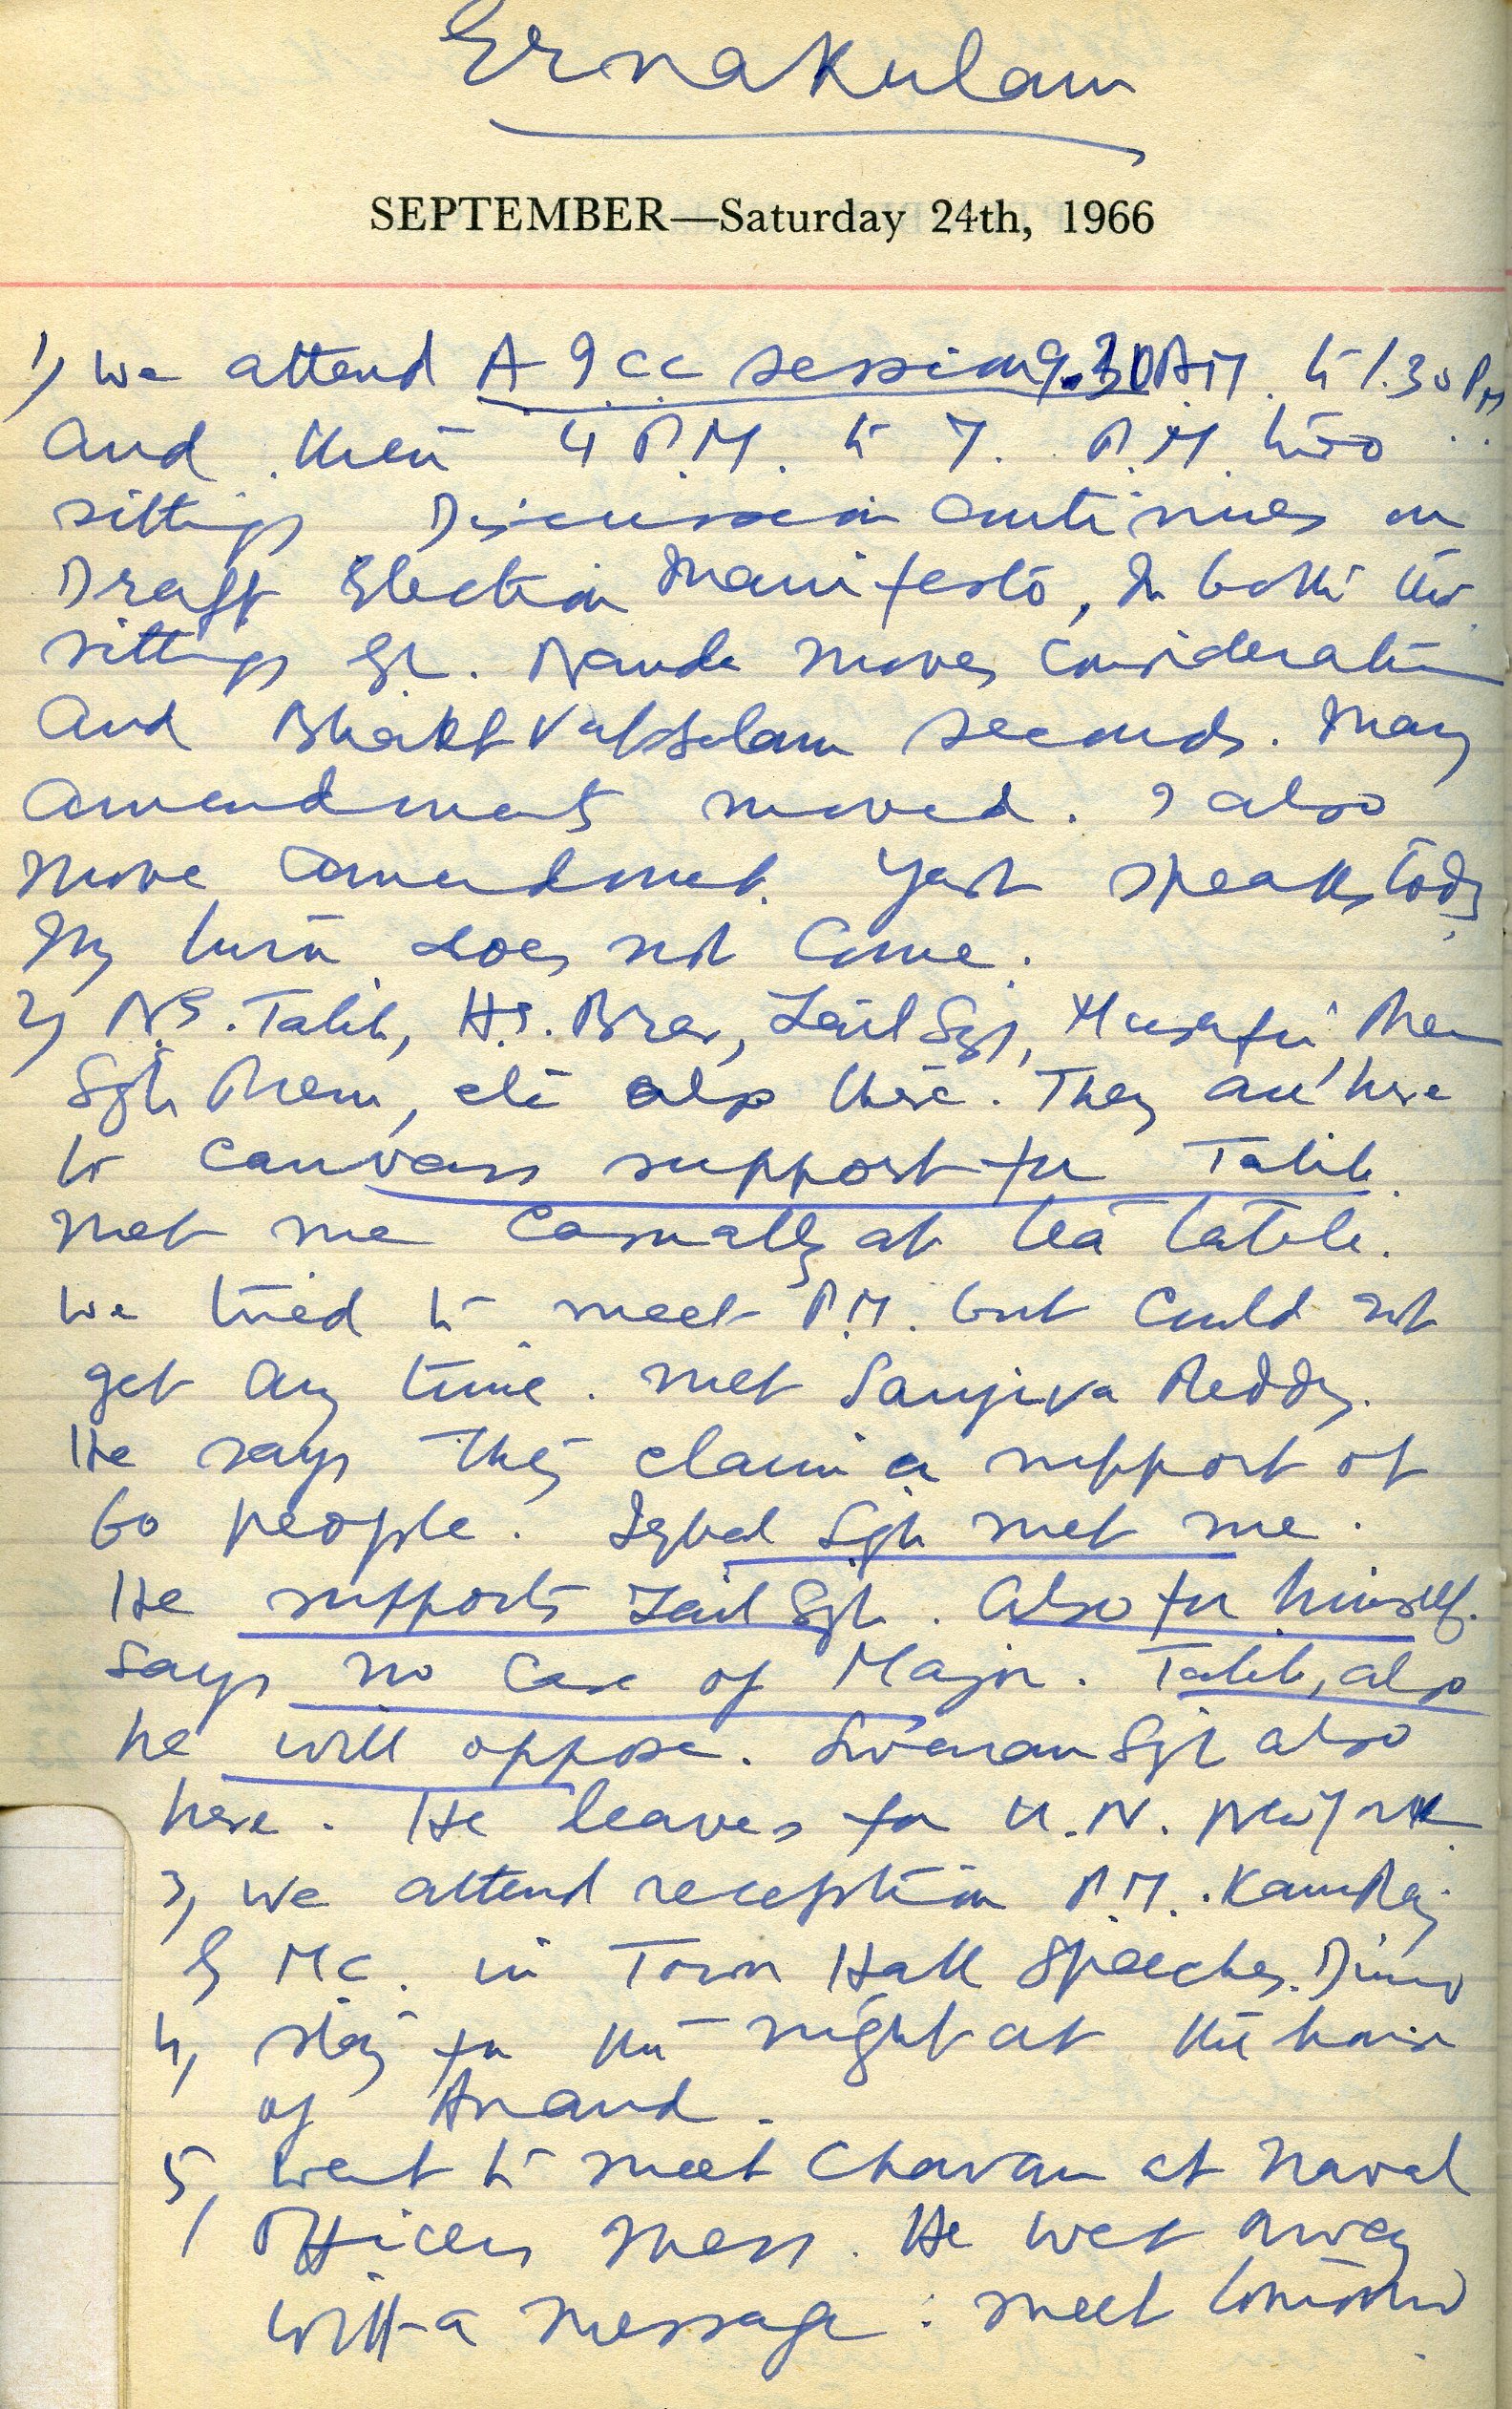 Ernakulam
SEPTEMBER—Saturday 24th, 1966
1) We attend A I C C session 9.30 A.M. to 1.30 P.M
and then 4 P.M. to 7. P.M. two
sittings Discussion continues on
Draft Election Manifesto, In both the
sittings Sh. Nanda moves consideration
and Bhakt Vatsalam seconds. Many
amendments moved. I also
move amendment. Yash speaks today
My turn does not come.
2) N.S. Talib, H.S. Brar, Zail Sgh, Musafir, Prem
Sgh Prem, etc also there. They are here
to canvass support for Talib.
met me casually at tea table.
We tried to meet P.M. but could not
get any time. met Sanjiva Reddy.
He says they claim a support of
60 people. Iqbal Sgh met me.
He supports Zail Sgh. Also for himself.
Says no case of Major. Talib, also
he will oppose. Swaran Sgh also
here. He leaves for U.N. New York.
3, We attend reception P.M. KamRaj
by M.C. in Town Hall Speeches. Dinner
4, stay for the night at the house
of Anand.
5, Went to meet Chavan at Naval
Officers Mess. He went away
with a message: meet tomorrow